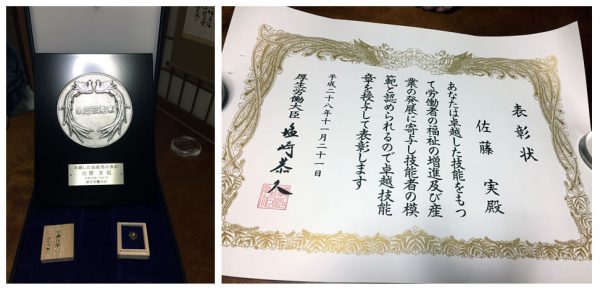 卓越した技能者の表彰
佐藤 実 殿
厚生労働大臣
表彰状
佐藤 実殿
あなたは卓越した技能をもつ
て労働者の福祉の増進及び産
業の発展に寄与し技能者の模
範と認められるので卓越技能
章を授与して表彰します
平成二十八年十一月二十一日
厚生労働大臣 塩崎恭久